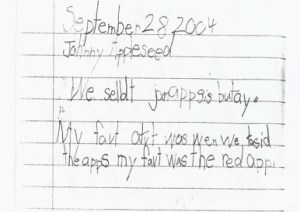 September 28 2004
Johnny Appleseed
We selldt jonappsis butay.
My favt ofit was wen we tasid
the apps my favt was the red app.